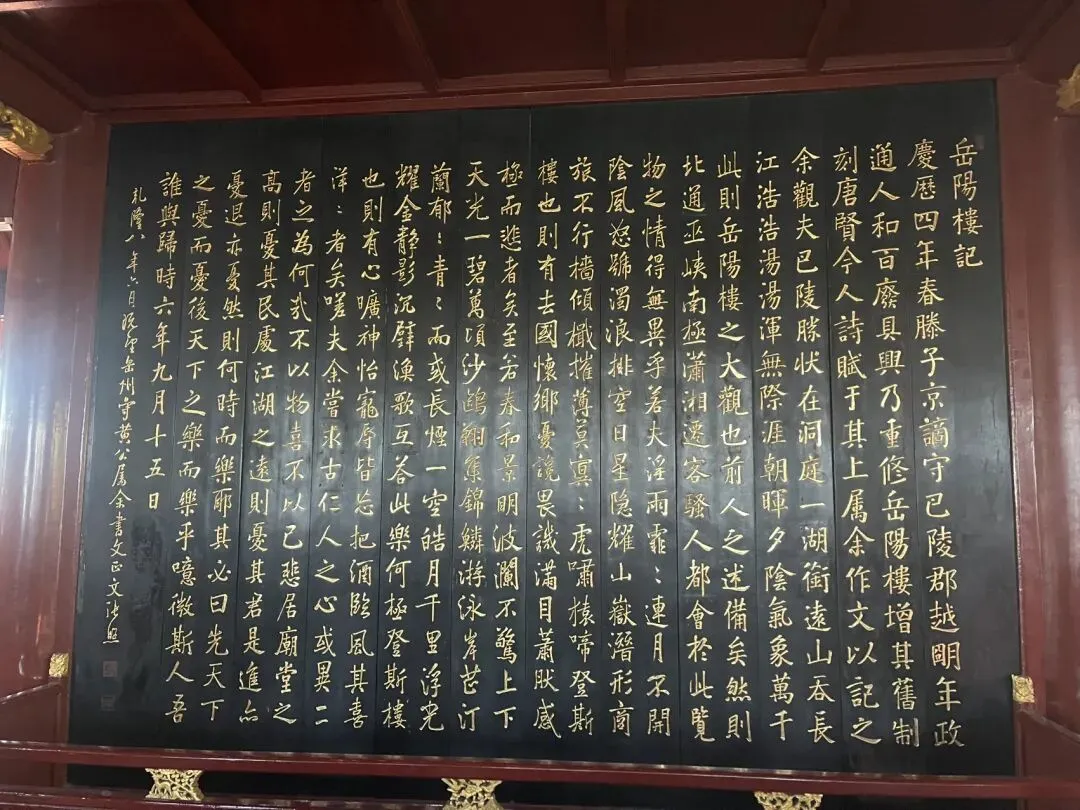 岳陽樓記
慶歷四年春滕子京謫守巴陵郡越明年政
通人和百廢具興乃重修岳陽樓增其舊制
刻唐賢今人詩賦于其上属余作文以記之
余觀夫巴陵勝状在洞庭一湖銜遠山吞長
江浩浩湯湯渾無際涯朝暉夕陰氣象萬千
此則岳陽樓之大觀也前人之述備矣然則
北通巫峽南極瀟湘遷客騷人都會於此覽
物之情得無異乎若夫淫雨霏〻連月不開
陰風怒號濁浪排空日星隐耀山嶽潛形商
旅不行檣傾檝摧薄莫冥〻虎嘯猿啼登斯
樓也則有去國懷鄉憂讒畏譏滿目蕭然感
極而悲者矣至若春和景明波瀾不驚上下
天光一碧萬頃沙鷗翔集錦鱗游泳岸芷汀
蘭郁〻青〻而或長煙一空皓月千里浮光
耀金靜影沉璧漁歌互荅此樂何極登斯樓
也則有心曠神怡寵辱皆忘把酒臨風其喜
洋〻者矣嗟夫余嘗求古仁人之心或異二
者之為何哉不以物喜不以己悲居廟堂之
高則憂其民處江湖之遠則憂其君是進亦
憂退亦憂然則何時而樂耶其必曰先天下
之憂而憂後天下之樂而樂乎噫微斯人吾
誰與歸時六年九月十五日
乾隆八年六月既望岳州守黃公属余書文正文張照